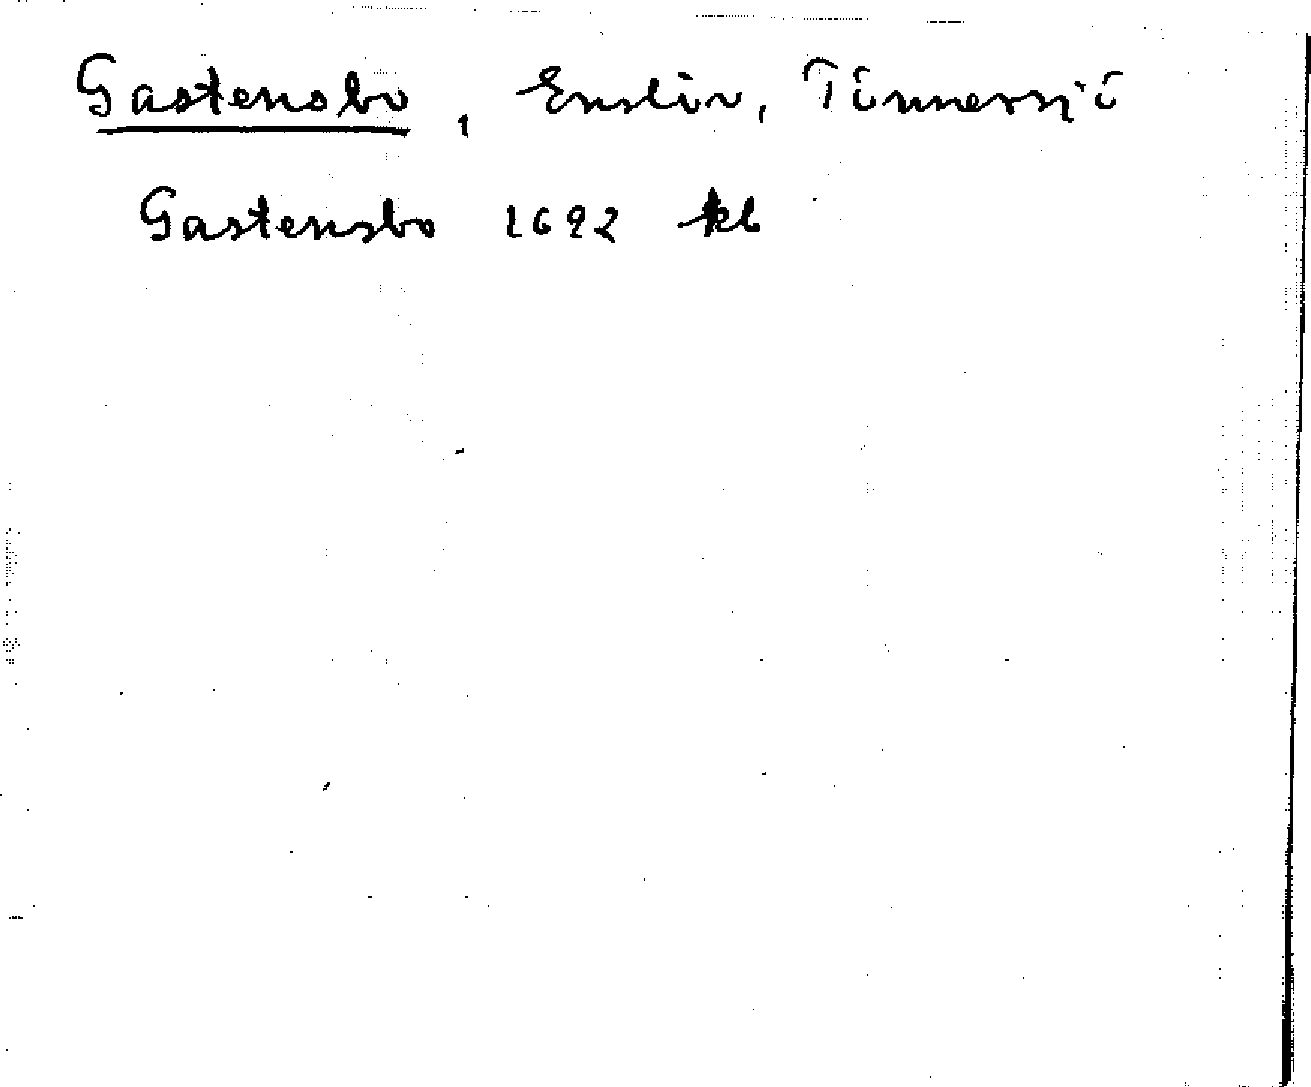 Gastensbo, Enslöv, Tönnersjö
Gastensbo 1692 kb